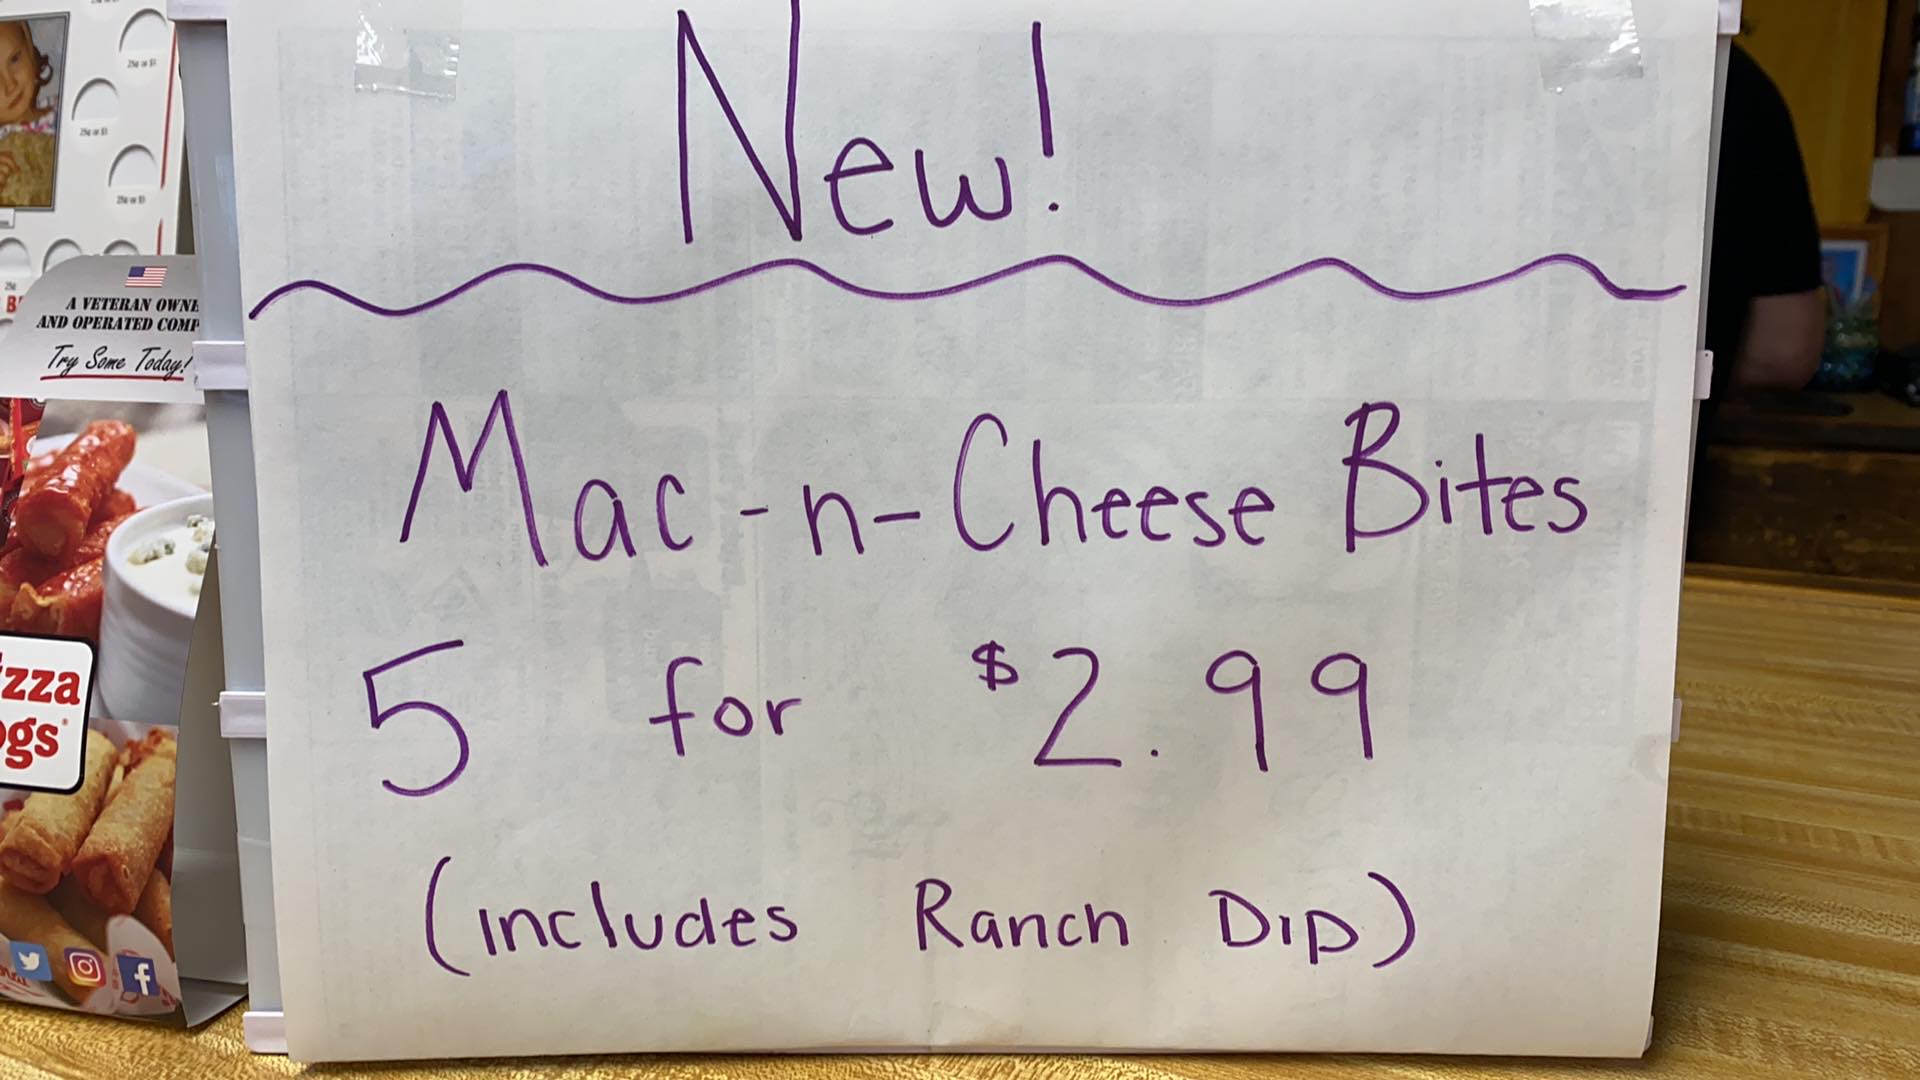 New!
Mac-n-Cheese Bites
5 for $2.99
(includes Ranch Dip)
25¢ or $1
25¢ or $1
25¢ or $1
A VETERAN OWNE
AND OPERATED COMP
Try Some Today!
zza
ogs